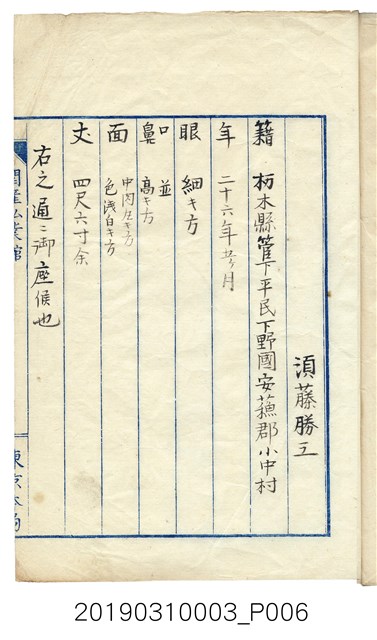 須藤勝三
籍 栃木縣管下平民下野國安蘓郡小中村
年 二十六年
眼 細キ方
口 並
鼻 高キ方
面 中肉
色浅白キ方
丈 四尺六寸余
右之通ニ御座候也
東京
20190310003_P006